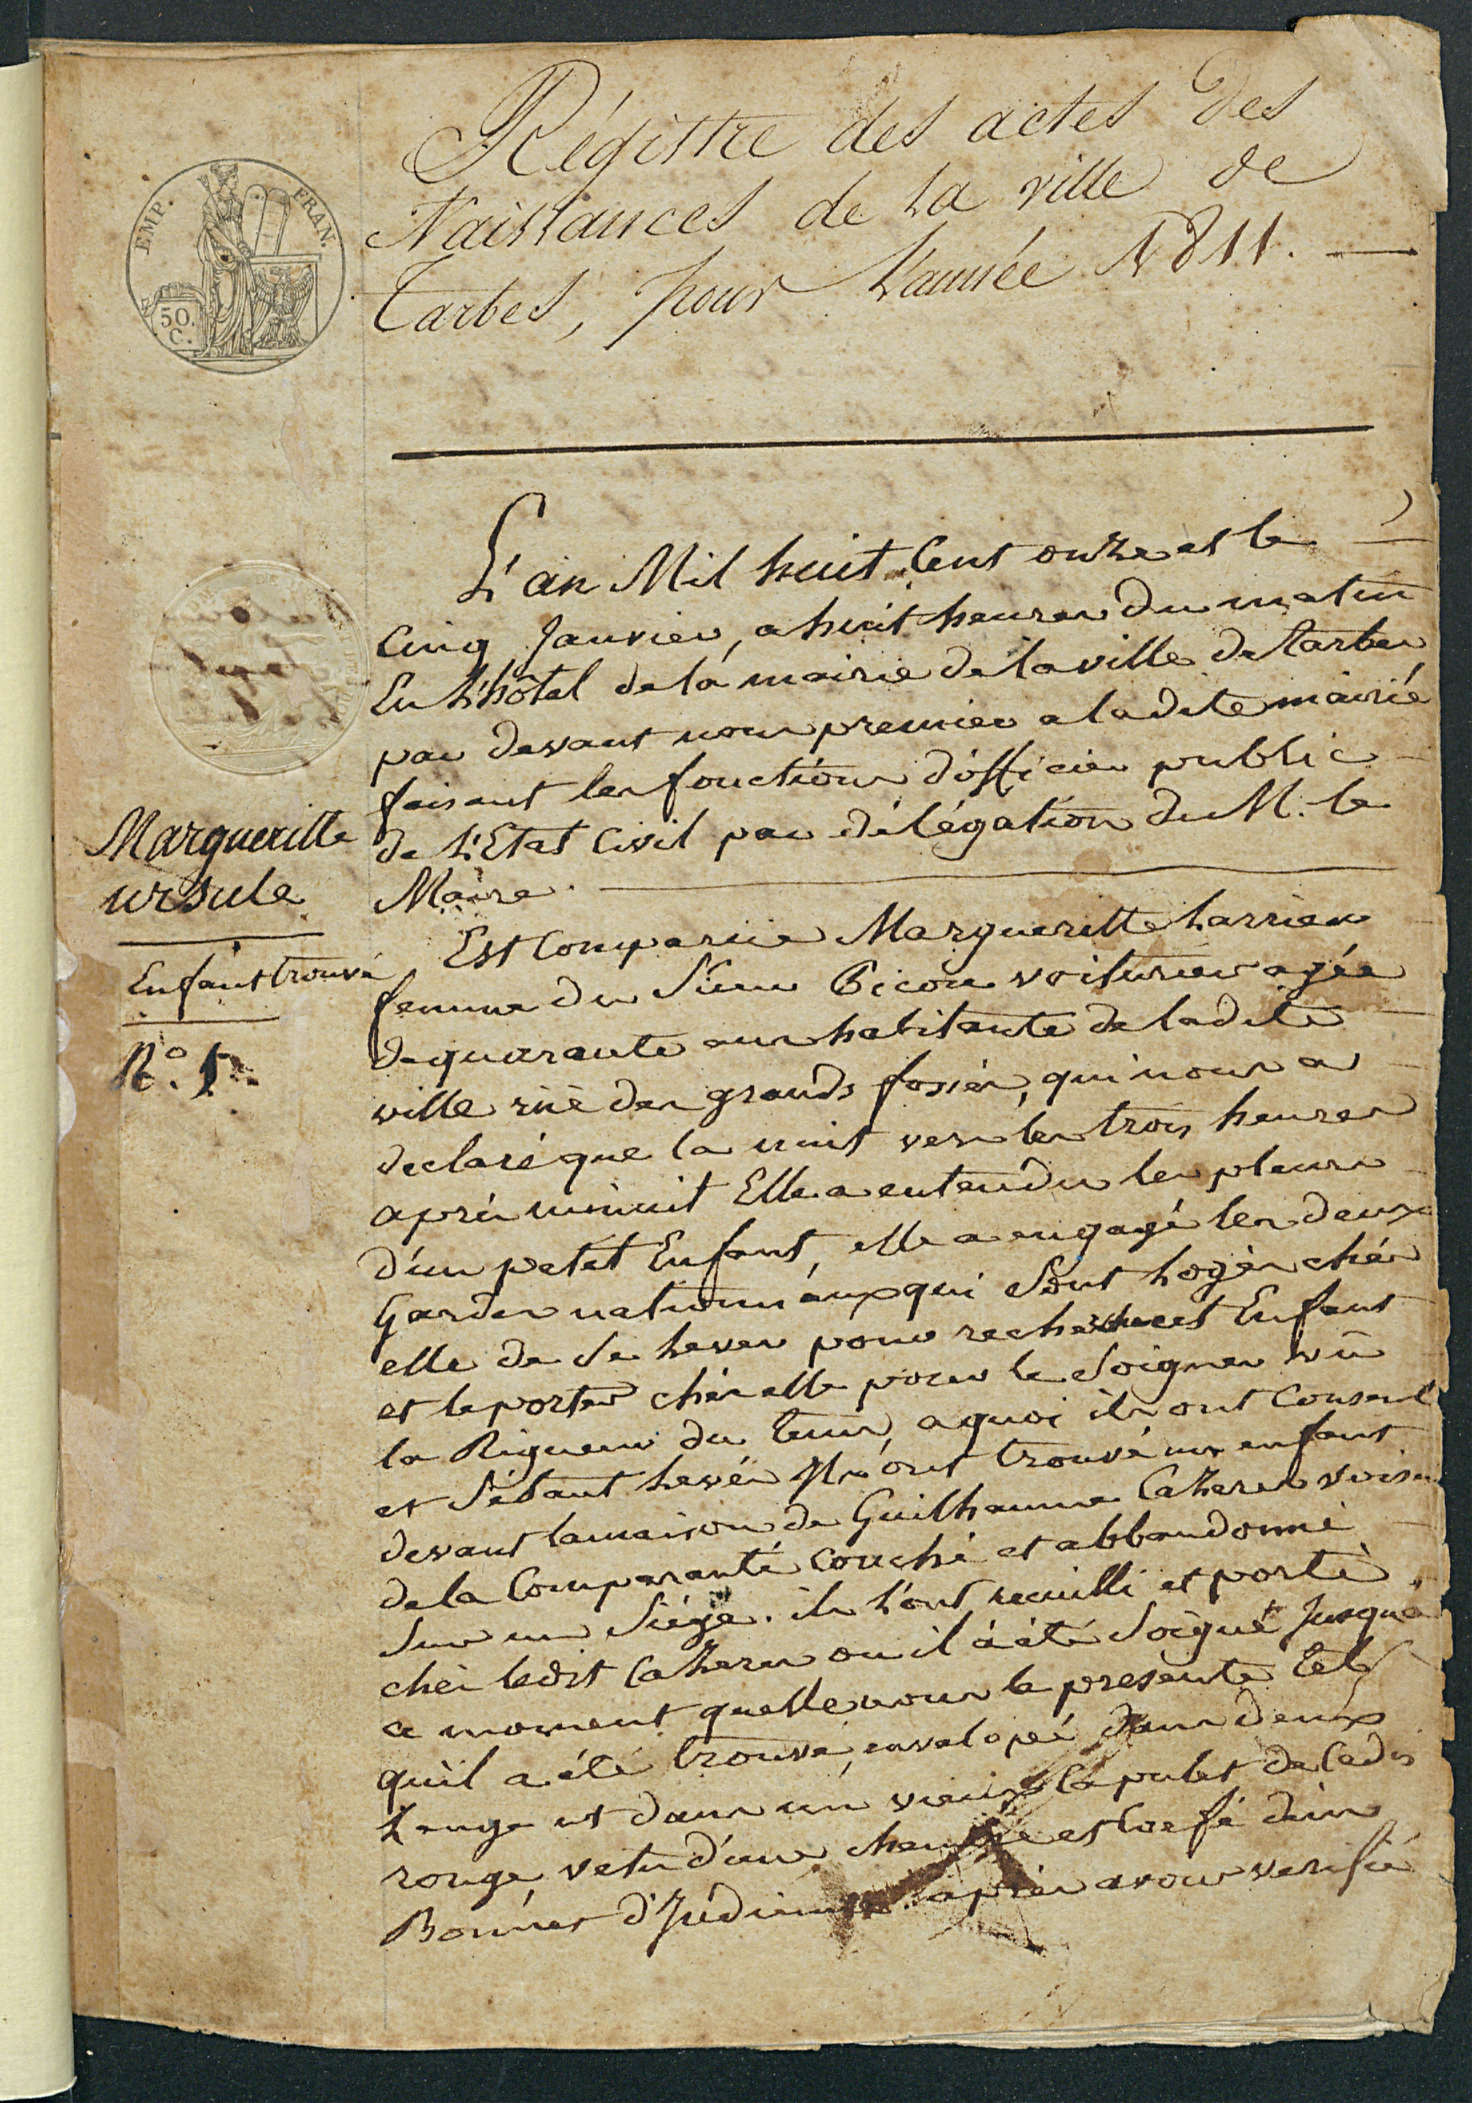 Régistre des actes des
Naissances de La ville de
Tarbes, pour L'année 1811. —
EMP. FRAN.
50.
C.
L'an Mil huit Cent onze et le
Cinq Janvier, a huit heures du matin
En L'hôtel de la mairie de la ville de Tarbes
par devant nous premier a ladite mairie
faisant les fonctions d'officier public
de L'Etat Civil par délégation du M. le
Maire.
Margueritte
ursule
Enfant trouvé
N.° 1.
Est Comparue Margueritte Larrieu
femme du Sieur Picou voiturier agée
de quarante ans habitante de ladite
ville rüe des grands fossés, qui nous a
declaré que la nuit vers les trois heures
après minuit Elle a entendu les pleurs
d'un petit Enfant, elle a engagé les deux
Gardes nationnaux qui Sont Logés chés
elle de Se Lever pour recherche cet Enfant
et le porter chés elle pour le Soigner vû
la Rigueur du tems, a quoi ils ont Consenti
et S'étant Levés Ils ont trouvé un enfant
devant la maison de Guilhaume Cazeres voisin
de la Comparante couché et abbandonné
Sur un Siége. ils L'ont recuilli et porté
chés ledit Cazeres ou il a été Soigné Jusqu'a
ce moment quelle nous le presente tel
qu'il a été trouvé, envelopé dans deux
Lange et dans un vieux Capulet de Cadis
rouge, vetu d'une chemise et Coefé d'un
Bonnet d'Indienne. après avoir verifié